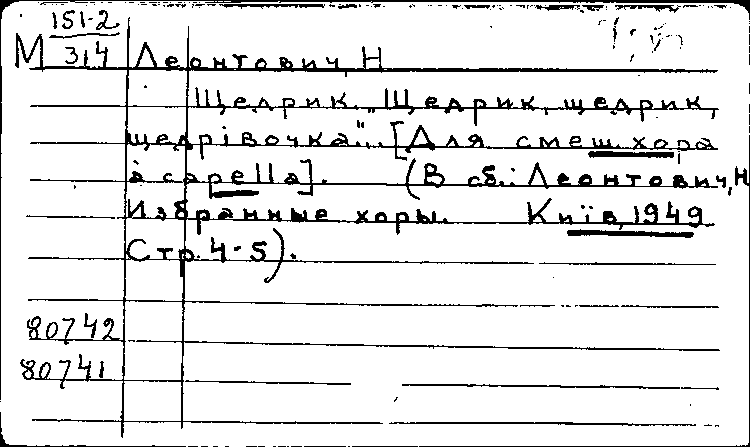 151-2
М 3,4 Леонтович, Н
Щедрик. „Щедрик, щедрик,
щедрiвочка"... [Для смеш. хора
à capella]. (В сб.: Леонтович, Н
Избранные хоры. Київ, 1949
Стр. 4-5).
80742
80741